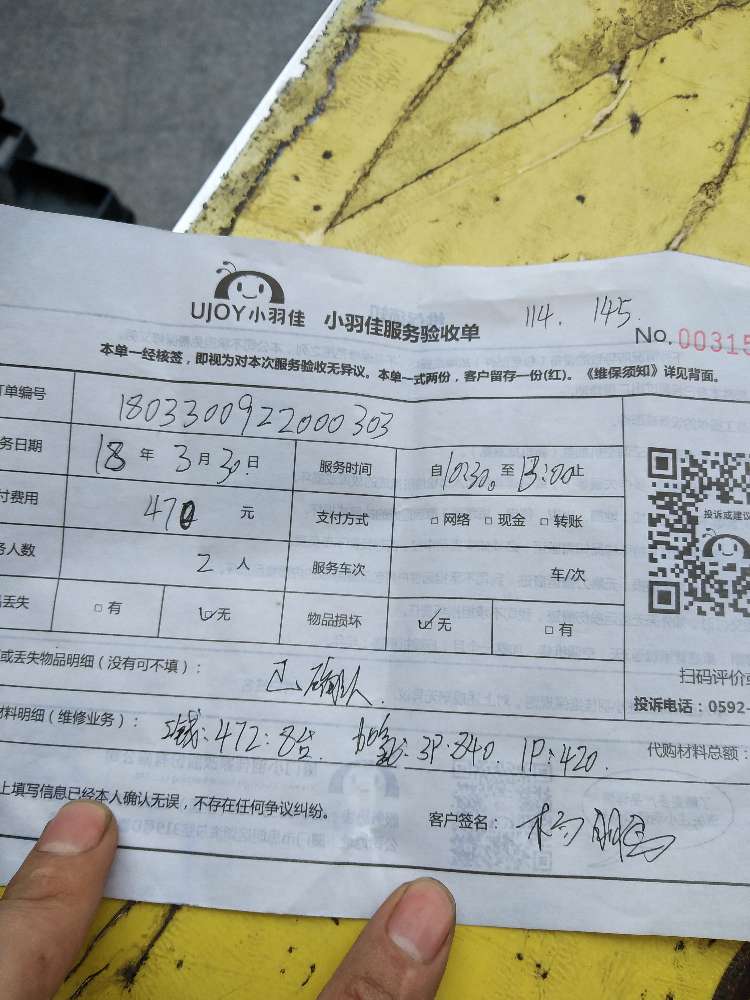 UJOY小羽佳 小羽佳服务验收单 114. 145.
No. 00315
本单一经核签，即视为对本次服务验收无异议。本单一式两份，客户留存一份(红)。《维保须知》详见背面。
订单编号 1803300922000303
务日期 18 年 3 月 30 日 服务时间 自 10:30 至 13:00 止
付费用 470 元 支付方式 □ 网络 □ 现金 □ 转账
投诉或建议
务人数 2 人 服务车次 车/次
丢失 □ 有 ☑ 无 物品损坏 ☑ 无 □ 有
或丢失物品明细（没有可不填）： 已确认
扫码评价或
投诉电话：0592-
材料明细（维修业务）： :472:8台 3P:840 1P:420 代购材料总额：
上填写信息已经本人确认无误，不存在任何争议纠纷。
客户签名：